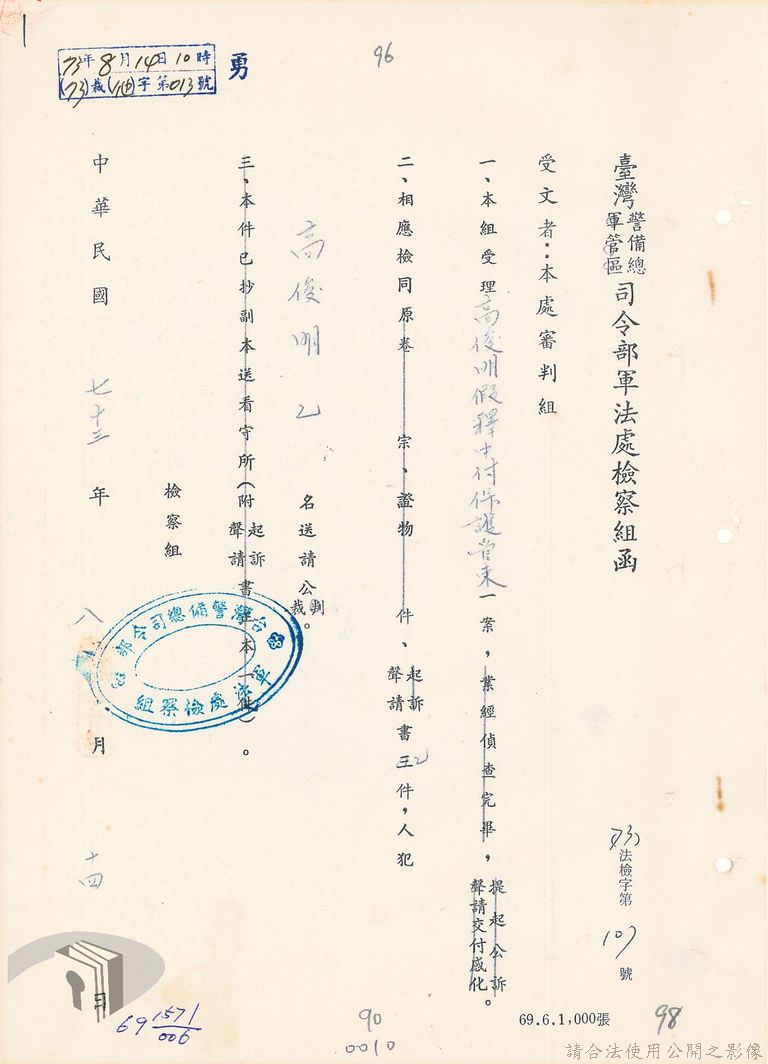 96
73年8月14日10時
(73)裁(他)字第013號
勇
臺灣警備總軍管區司令部軍法處檢察組函
(73)法檢字第107號
受文者：本處審判組
一、本組受理高俊明假釋中付保護管束一案，業經偵查完畢，提起公訴聲請交付感化。
二、相應檢同原卷 宗、證物 件、起訴聲請書正乙件，人犯
高俊明乙 名送請公判裁。
三、本件已抄副本送看守所(附起訴聲請書正本一件)。
檢察組
台灣警備總司令部
軍法處檢察組
中華民國七十三年八月十四日
69.6.1,000張
69 1571/006
90
0010
98
請合法使用公開之影像